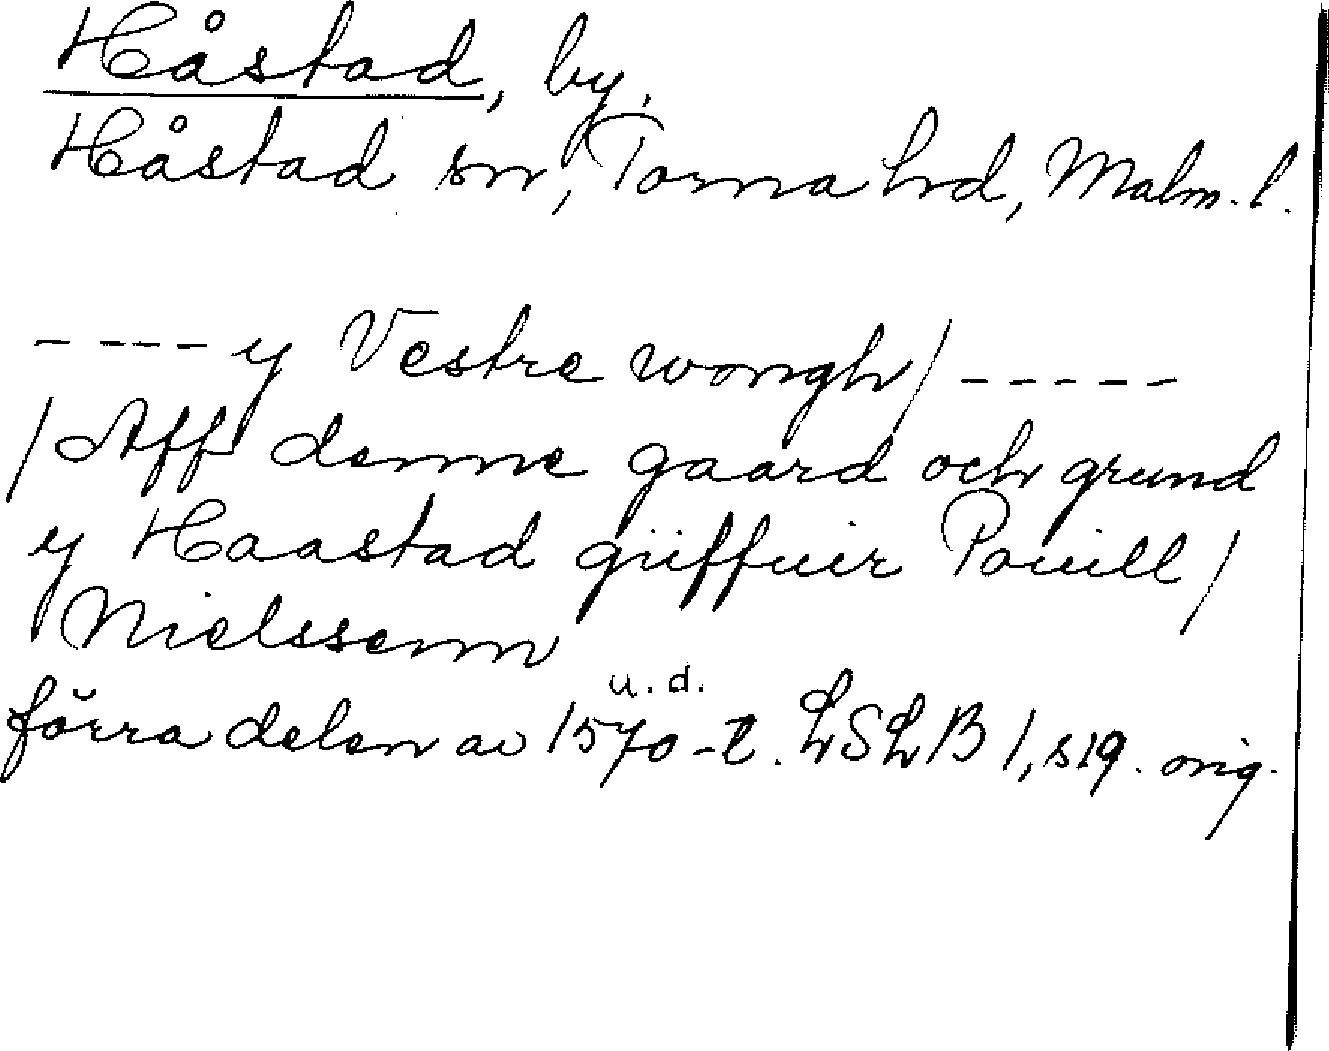 Håstad, by,
Håstad sn, Torna hd, Malm. l.
---- y Vestre wongh / -----
/ Aff denne gaard och grund
y Haastad giiffuir Pouill /
Nielssenn
u. d.
förra delen av 1570-t. LSLB 1, s 19. orig.